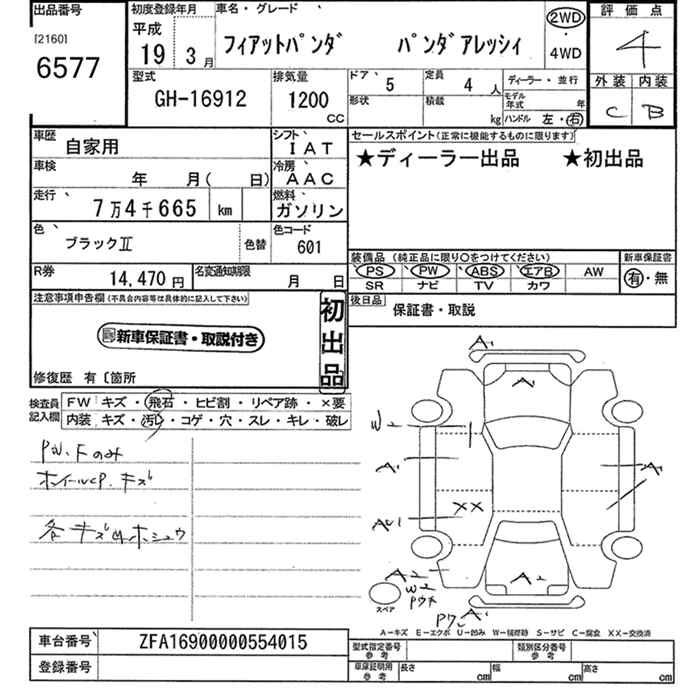 出品番号
[2160]
6577
初度登録年月
平成
19 3月
車名・グレード
フィアットパンダ パンダアレッシィ
2WD
・
4WD
評価点
4
外装 内装
C B
型式
GH-16912
排気量
1200
CC
ドア 5
定員 4人
形状
積載 kg
ディーラー・並行
モデル年式 年
ハンドル 左・右
車歴 自家用
シフト IAT
車検 年 月( 日)
冷房 AAC
走行 7万4千665 km
燃料 ガソリン
色 ブラックⅡ 色替
色コード 601
R券 14,470円
名変通知期限 月 日
セールスポイント(正常に機能するものに限ります)
★ディーラー出品 ★初出品
装備品(純正品に限り○をつけてください)
PS PW ABS エアB AW
SR ナビ TV カワ
新車保証書
有・無
後日品 保証書・取説
注意事項申告欄(不具合内容等は具体的に記入して下さい)
新車保証書・取説付き
初出品
修復歴 有〔箇所
検査員記入欄
FW キズ・飛石・ヒビ割・リペア跡・×要
内装 キズ・汚れ・コゲ・穴・スレ・キレ・破レ
PW.Fのみ
ホイールCP.キズ
各キズ凹ホシュウ
A1
A1
W2
A1
A1
AU1
XX
A2
W2
Pウチ
A2
Pワレ A1
スペア
A-キズ E-エクボ U-凹み W-補修跡 S-サビ C-腐食 XX-交換済
車台番号 ZFA16900000554015
登録番号
型式指定番号参考
類別区分番号参考
車庫証明用参考 長さ cm 幅 cm 高さ cm